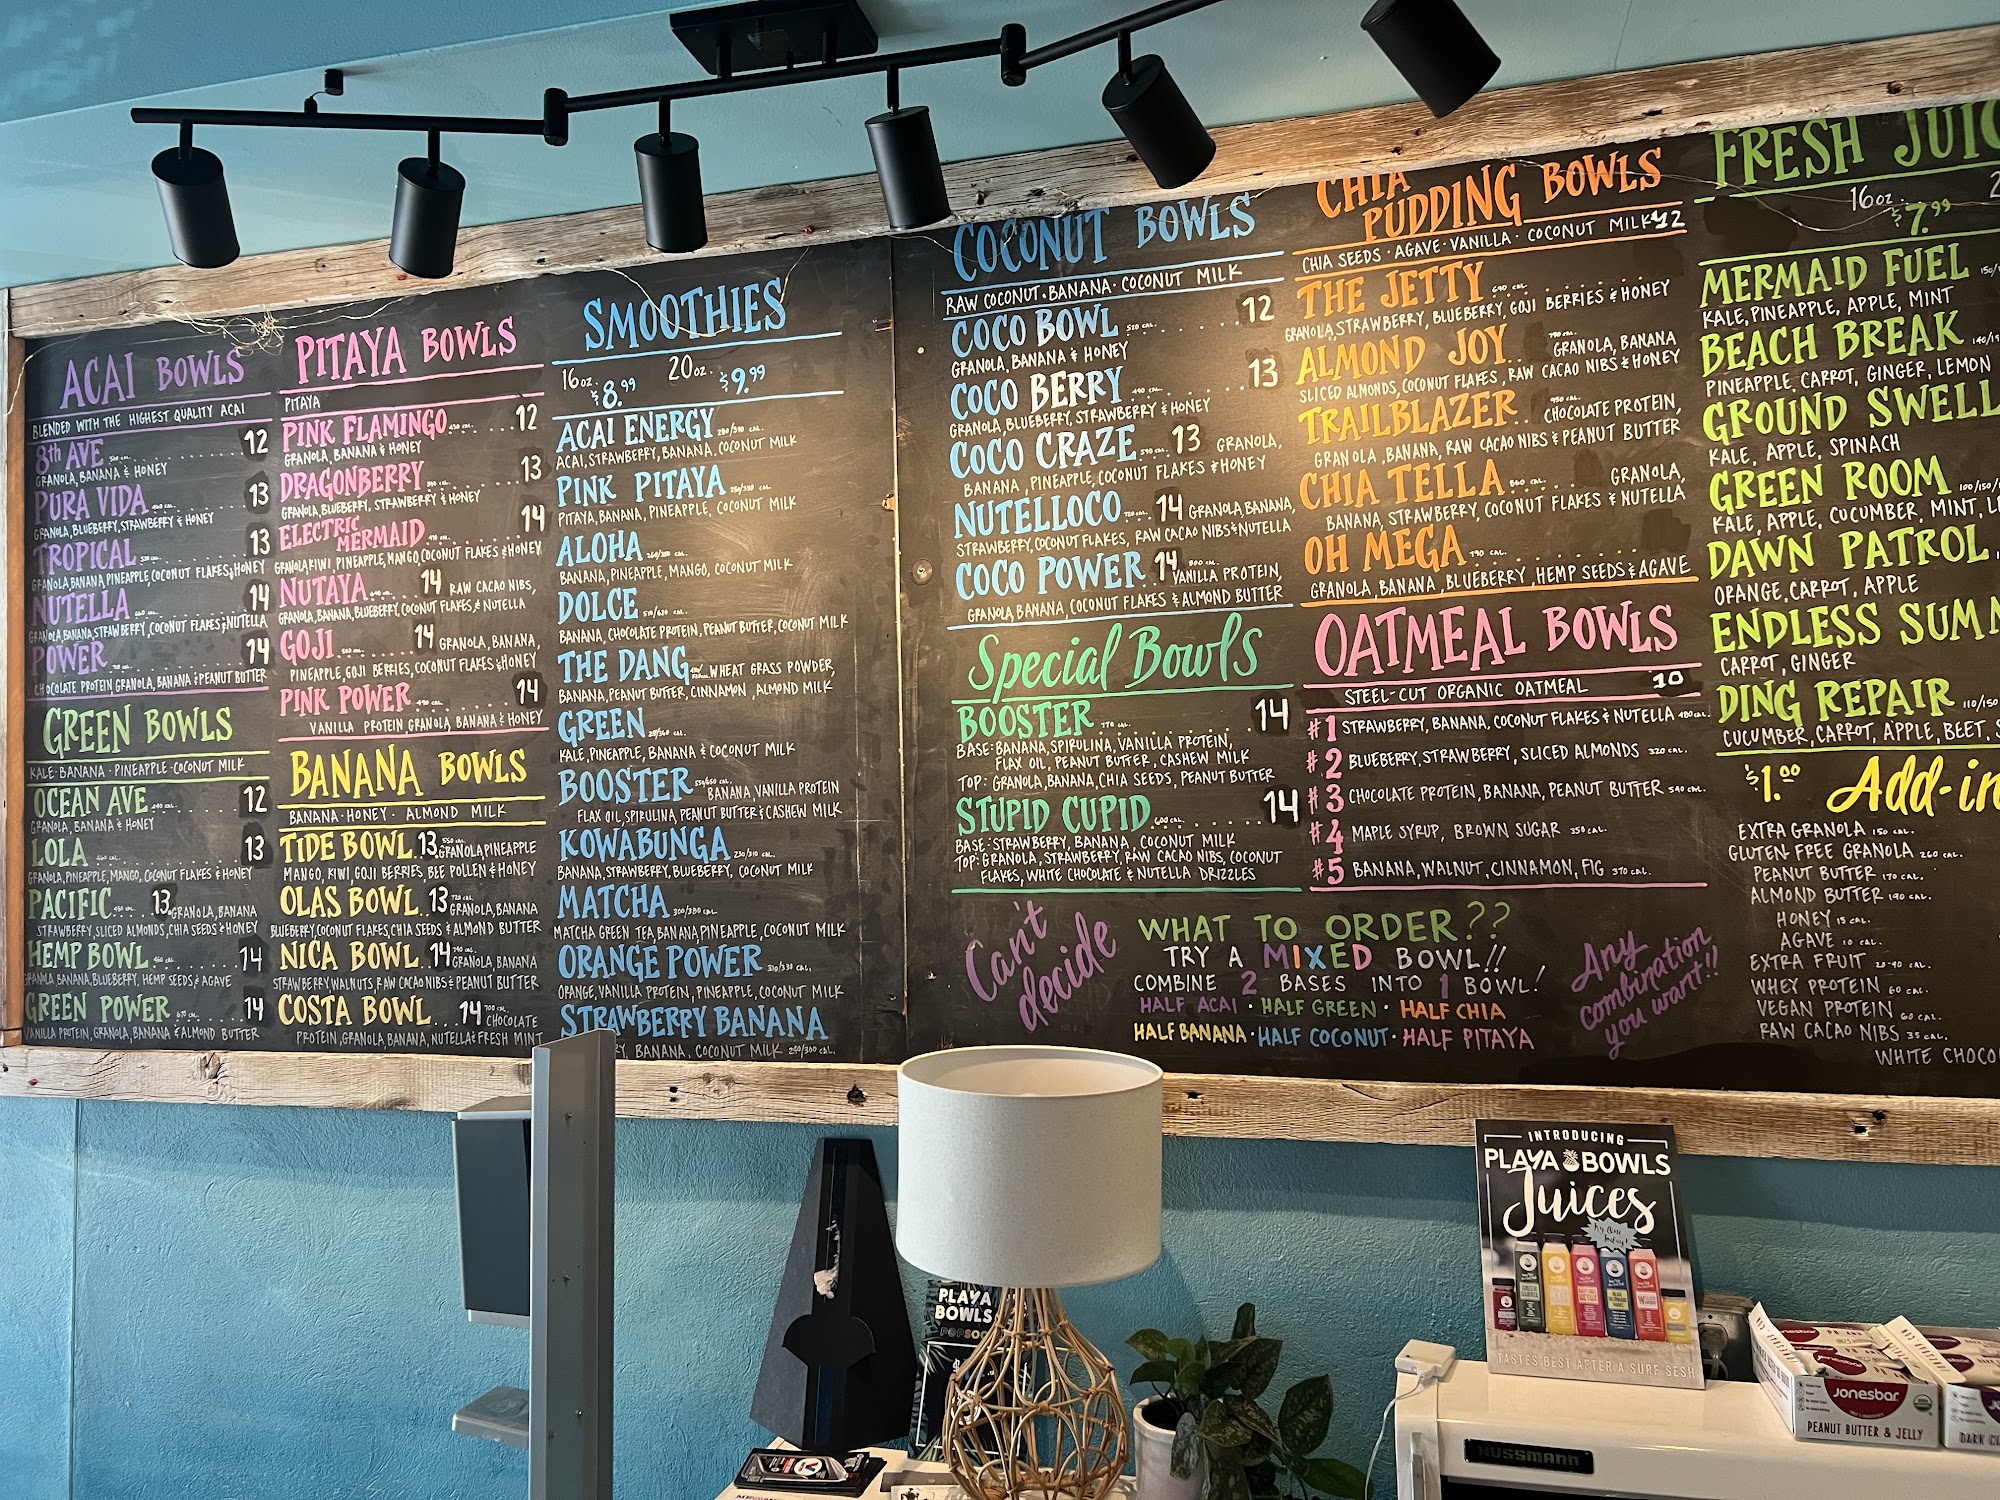 ACAI BOWLS
BLENDED WITH THE HIGHEST QUALITY ACAI
8th AVE 12
GRANOLA, BANANA & HONEY
PURA VIDA 13
GRANOLA, BLUEBERRY, STRAWBERRY & HONEY
TROPICAL 13
GRANOLA, BANANA, PINEAPPLE, COCONUT FLAKES & HONEY
NUTELLA 14
GRANOLA, BANANA, STRAWBERRY, COCONUT FLAKES & NUTELLA
POWER 14
CHOCOLATE PROTEIN, GRANOLA, BANANA & PEANUT BUTTER
GREEN BOWLS
KALE · BANANA · PINEAPPLE · COCONUT MILK
OCEAN AVE 12
GRANOLA, BANANA & HONEY
LOLA 13
GRANOLA, PINEAPPLE, MANGO, COCONUT FLAKES & HONEY
PACIFIC 13 GRANOLA, BANANA
STRAWBERRY, SLICED ALMONDS, CHIA SEEDS & HONEY
HEMP BOWL 14
GRANOLA, BANANA, BLUEBERRY, HEMP SEEDS & AGAVE
GREEN POWER 14
VANILLA PROTEIN, GRANOLA, BANANA & ALMOND BUTTER
PITAYA BOWLS
PITAYA
PINK FLAMINGO 12
GRANOLA, BANANA & HONEY
DRAGONBERRY 13
GRANOLA, BLUEBERRY, STRAWBERRY & HONEY
ELECTRIC MERMAID 14
GRANOLA, KIWI, PINEAPPLE, MANGO, COCONUT FLAKES & HONEY
NUTAYA 14 RAW CACAO NIBS,
GRANOLA, BANANA, BLUEBERRY, COCONUT FLAKES & NUTELLA
GOJI 14 GRANOLA, BANANA,
PINEAPPLE, GOJI BERRIES, COCONUT FLAKES & HONEY
PINK POWER 14
VANILLA PROTEIN, GRANOLA, BANANA & HONEY
BANANA BOWLS
BANANA · HONEY · ALMOND MILK
TIDE BOWL 13 GRANOLA, PINEAPPLE
MANGO, KIWI, GOJI BERRIES, BEE POLLEN & HONEY
OLAS BOWL 13 GRANOLA, BANANA
BLUEBERRY, COCONUT FLAKES, CHIA SEEDS & ALMOND BUTTER
NICA BOWL 14 GRANOLA, BANANA
STRAWBERRY, WALNUTS, RAW CACAO NIBS & PEANUT BUTTER
COSTA BOWL 14 CHOCOLATE
PROTEIN, GRANOLA, BANANA, NUTELLA & FRESH MINT
SMOOTHIES
16oz. $8.99 20oz. $9.99
ACAI ENERGY
ACAI, STRAWBERRY, BANANA, COCONUT MILK
PINK PITAYA
PITAYA, BANANA, PINEAPPLE, COCONUT MILK
ALOHA
BANANA, PINEAPPLE, MANGO, COCONUT MILK
DOLCE
BANANA, CHOCOLATE PROTEIN, PEANUT BUTTER, COCONUT MILK
THE DANG WHEAT GRASS POWDER,
BANANA, PEANUT BUTTER, CINNAMON, ALMOND MILK
GREEN
KALE, PINEAPPLE, BANANA & COCONUT MILK
BOOSTER BANANA, VANILLA PROTEIN
FLAX OIL, SPIRULINA, PEANUT BUTTER & CASHEW MILK
KOWABUNGA
BANANA, STRAWBERRY, BLUEBERRY, COCONUT MILK
MATCHA
MATCHA GREEN TEA, BANANA, PINEAPPLE, COCONUT MILK
ORANGE POWER
ORANGE, VANILLA PROTEIN, PINEAPPLE, COCONUT MILK
STRAWBERRY BANANA
BANANA, COCONUT MILK
COCONUT BOWLS
RAW COCONUT · BANANA · COCONUT MILK
COCO BOWL 12
GRANOLA, BANANA & HONEY
COCO BERRY 13
GRANOLA, BLUEBERRY, STRAWBERRY & HONEY
COCO CRAZE 13 GRANOLA,
BANANA, PINEAPPLE, COCONUT FLAKES & HONEY
NUTELLOCO 14 GRANOLA, BANANA,
STRAWBERRY, COCONUT FLAKES, RAW CACAO NIBS & NUTELLA
COCO POWER 14 VANILLA PROTEIN,
GRANOLA, BANANA, COCONUT FLAKES & ALMOND BUTTER
Special Bowls
BOOSTER 770 CAL. 14
BASE: BANANA, SPIRULINA, VANILLA PROTEIN,
FLAX OIL, PEANUT BUTTER, CASHEW MILK
TOP: GRANOLA, BANANA, CHIA SEEDS, PEANUT BUTTER
STUPID CUPID 600 CAL. 14
BASE: STRAWBERRY, BANANA, COCONUT MILK
TOP: GRANOLA, STRAWBERRY, RAW CACAO NIBS, COCONUT
FLAKES, WHITE CHOCOLATE & NUTELLA DRIZZLES
CHIA PUDDING BOWLS
CHIA SEEDS · AGAVE · VANILLA · COCONUT MILK 12
THE JETTY 690 CAL.
GRANOLA, STRAWBERRY, BLUEBERRY, GOJI BERRIES & HONEY
ALMOND JOY GRANOLA, BANANA
SLICED ALMONDS, COCONUT FLAKES, RAW CACAO NIBS & HONEY
TRAILBLAZER CHOCOLATE PROTEIN,
GRANOLA, BANANA, RAW CACAO NIBS & PEANUT BUTTER
CHIA TELLA 860 CAL. GRANOLA,
BANANA, STRAWBERRY, COCONUT FLAKES & NUTELLA
OH MEGA 790 CAL.
GRANOLA, BANANA, BLUEBERRY, HEMP SEEDS & AGAVE
OATMEAL BOWLS
STEEL-CUT ORGANIC OATMEAL 10
#1 STRAWBERRY, BANANA, COCONUT FLAKES & NUTELLA 480 CAL.
#2 BLUEBERRY, STRAWBERRY, SLICED ALMONDS 320 CAL.
#3 CHOCOLATE PROTEIN, BANANA, PEANUT BUTTER 540 CAL.
#4 MAPLE SYRUP, BROWN SUGAR 350 CAL.
#5 BANANA, WALNUT, CINNAMON, FIG 370 CAL.
Can't decide
WHAT TO ORDER??
TRY A MIXED BOWL!!
COMBINE 2 BASES INTO 1 BOWL!
HALF ACAI · HALF GREEN · HALF CHIA
HALF BANANA · HALF COCONUT · HALF PITAYA
Any combination you want!!
FRESH JUIC
16oz. $7.99 2
MERMAID FUEL
KALE, PINEAPPLE, APPLE, MINT
BEACH BREAK
PINEAPPLE, CARROT, GINGER, LEMON
GROUND SWELL
KALE, APPLE, SPINACH
GREEN ROOM
KALE, APPLE, CUCUMBER, MINT, LE
DAWN PATROL
ORANGE, CARROT, APPLE
ENDLESS SUMM
CARROT, GINGER
DING REPAIR 110/150
CUCUMBER, CARROT, APPLE, BEET, S
$1.00 Add-in
EXTRA GRANOLA 150 CAL.
GLUTEN FREE GRANOLA 260 CAL.
PEANUT BUTTER 170 CAL.
ALMOND BUTTER 190 CAL.
HONEY 15 CAL.
AGAVE 10 CAL.
EXTRA FRUIT 20-90 CAL.
WHEY PROTEIN 60 CAL.
VEGAN PROTEIN 60 CAL.
RAW CACAO NIBS 35 CAL.
WHITE CHOCO
INTRODUCING
PLAYA BOWLS
Juices
Try One Today!
TASTES BEST AFTER A SURF SESH
PLAYA BOWLS
POPSOC
HUSSMANN
JONESBAR
PEANUT BUTTER & JELLY